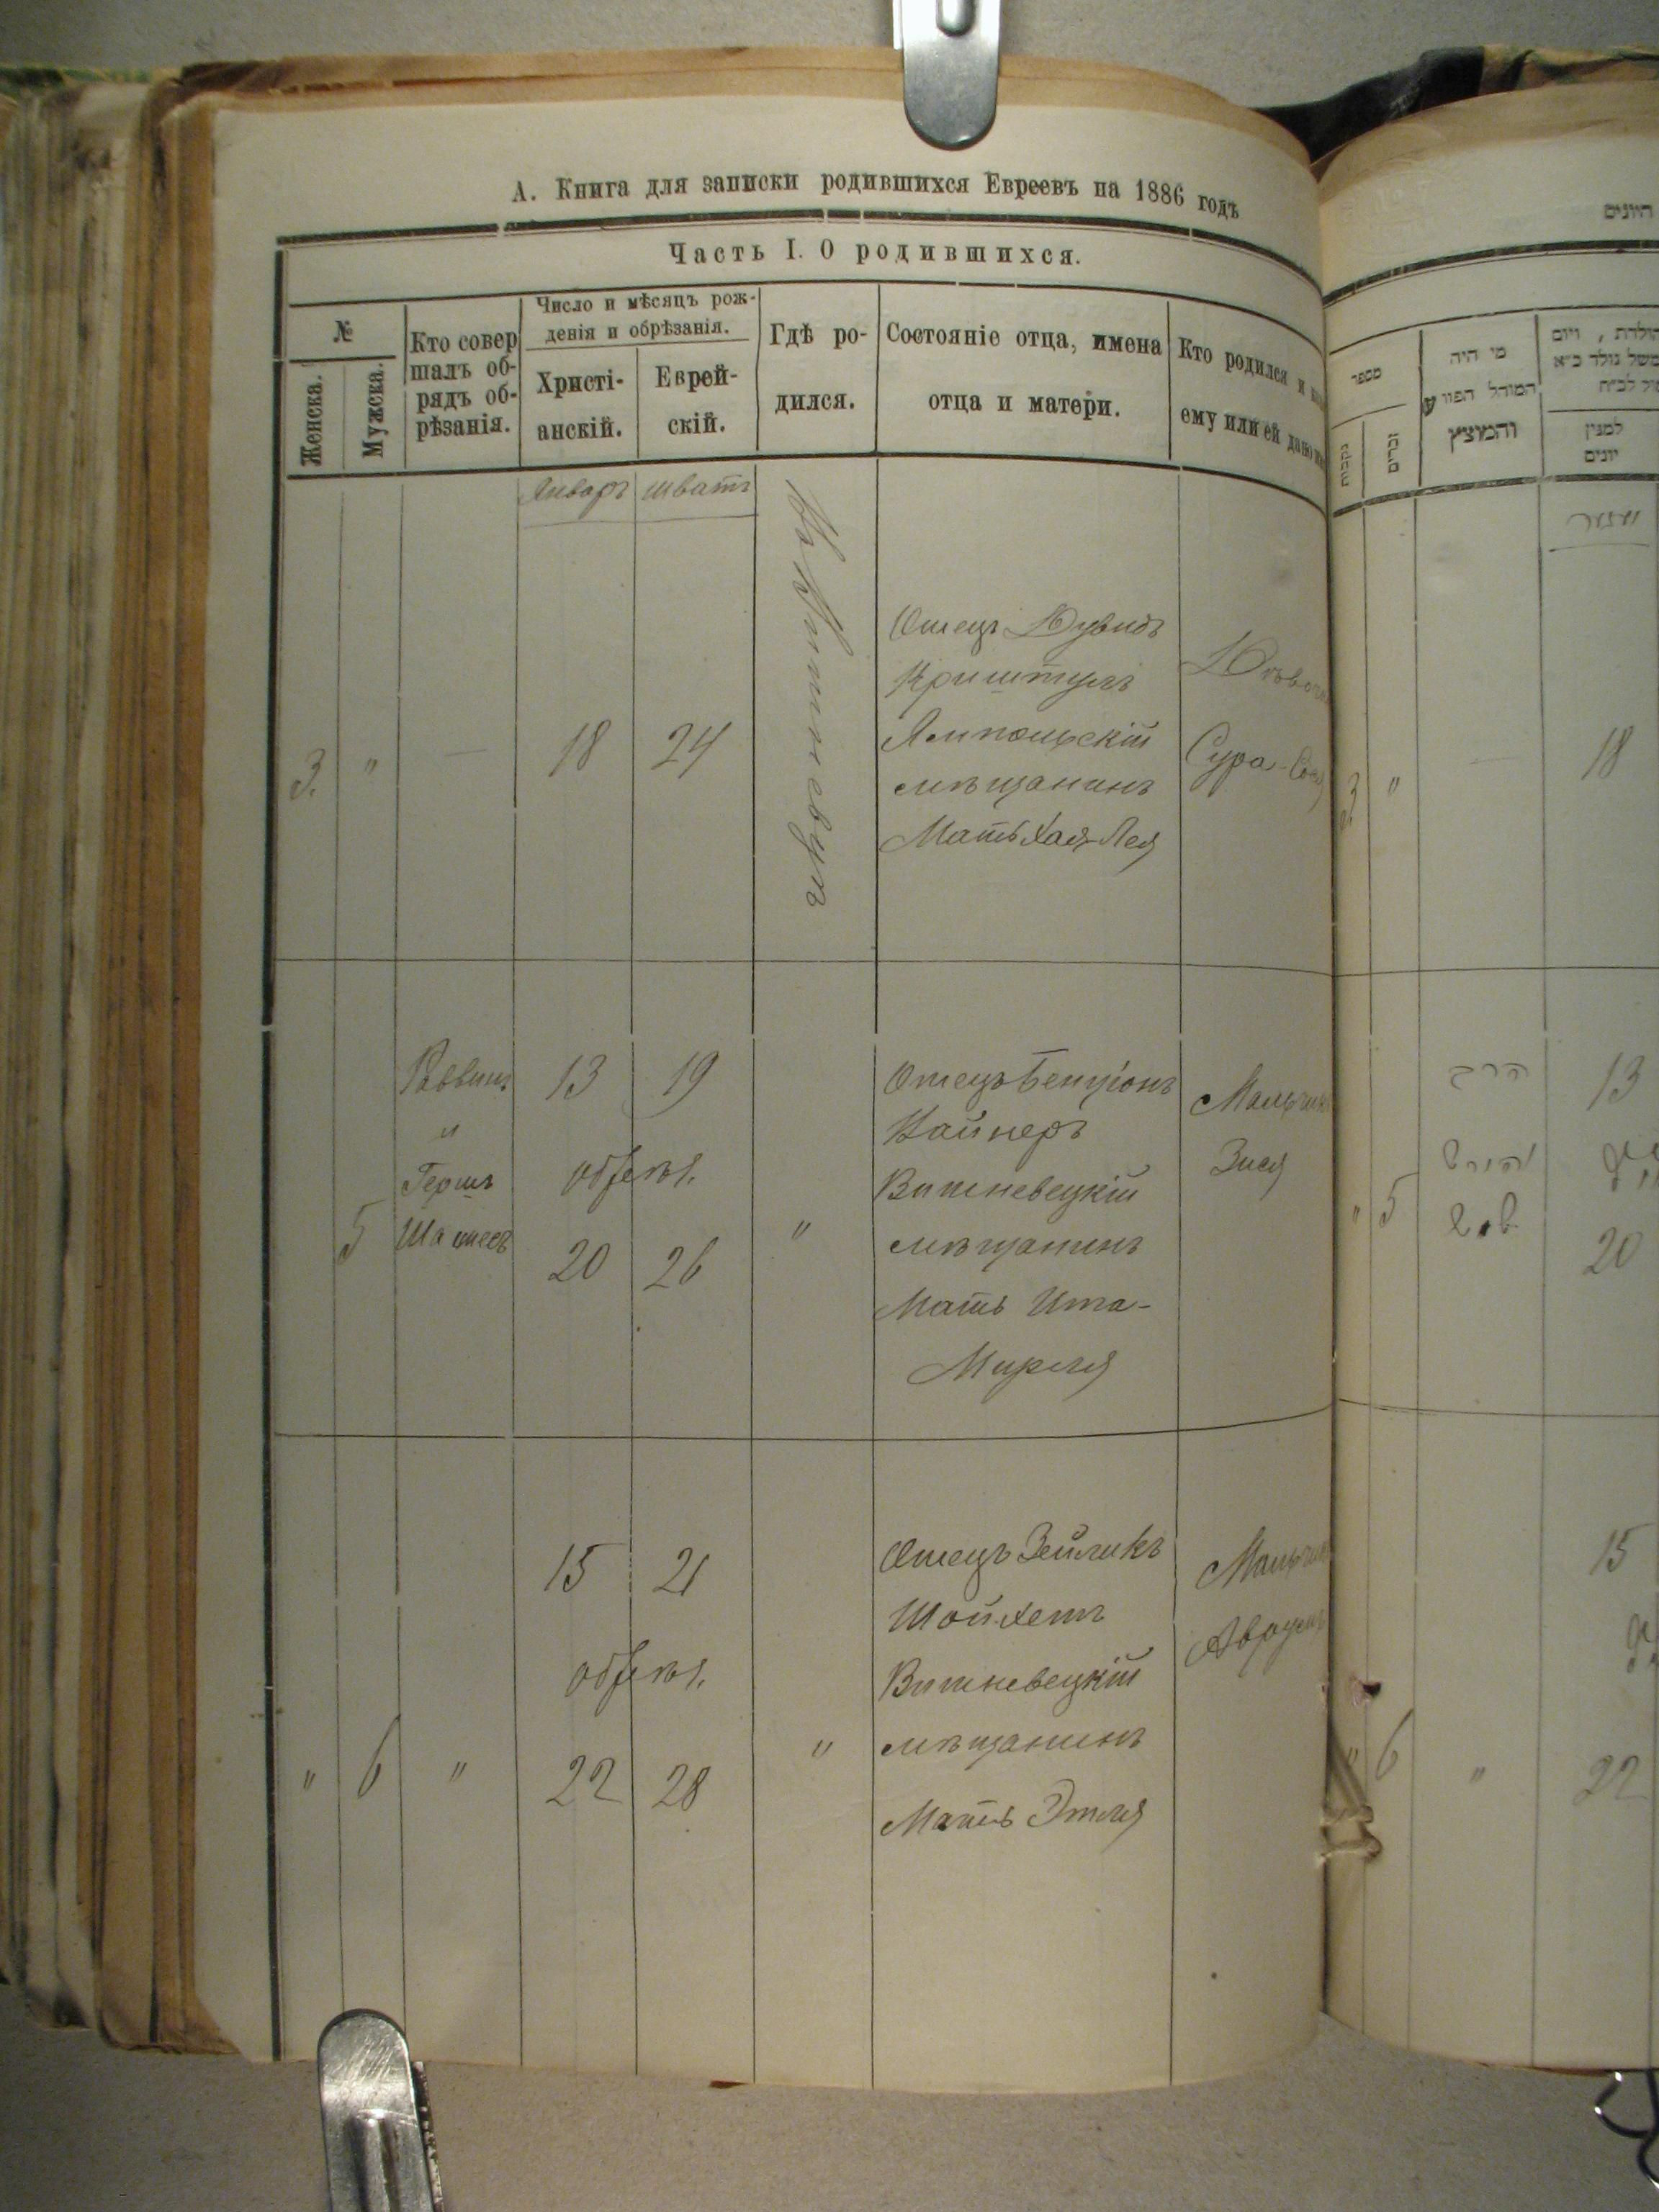 А. Книга для записки родившихся Евреевъ на 1886 годъ
Часть I. О родившихся.
№
Женска.
Мужска.
Кто совер
шалъ об-
рядъ об-
рѣзанія.
Число и мѣсяцъ рож-
денія и обрѣзанія.
Христі-
анскій.
Еврей-
скій.
Гдѣ ро-
дился.
Состояніе отца, имена
отца и матери.
Кто родился и
ему или ей дано
Январъ
шватъ
3.
"
—
18
24
Отецъ Дувидъ
Криштулъ
Ямпольскій
мѣщанинъ
Мать Хая-Лея
Сура-
5
Раввинъ
и
Гершъ
13
19
обрѣз.
20
26
"
Отецъ Бенціонъ
Вишневецкій
мѣщанинъ
Мать Ита-
Мирля
Мальчикъ
Зися
"
6
"
15
21
обрѣз.
22
28
"
Отецъ Зейликъ
Шойхетъ
Вишневецкій
мѣщанинъ
Мать Этля
Мальчикъ
Аврумъ
היונים
מספר
נקבות
זכרים
מי היה
המוהל הפורע
והמוצץ
למנין
יונים
3
"
—
18
"
5
הרב
13
20
"
6
"
15
22